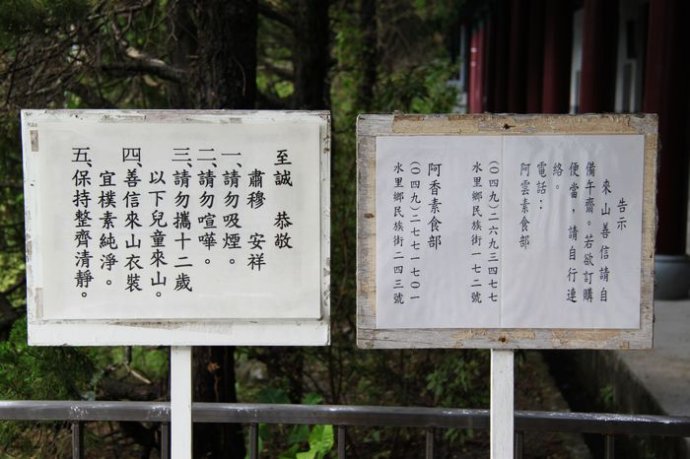 至誠 恭敬
肅穆 安祥
一、請勿吸煙。
二、請勿喧嘩。
三、請勿攜十二歲
以下兒童來山。
四、善信來山衣裝
宜樸素純淨。
五、保持整齊清靜。
告示
來山善信請自
備午齋。若欲訂購
便當，請自行連
絡。
電話：
阿雲素食部
(〇四九)二六九三四七七
水里鄉民族街一七二號
阿香素食部
(〇四九)二七七一七〇一
水里鄉民族街二四三號